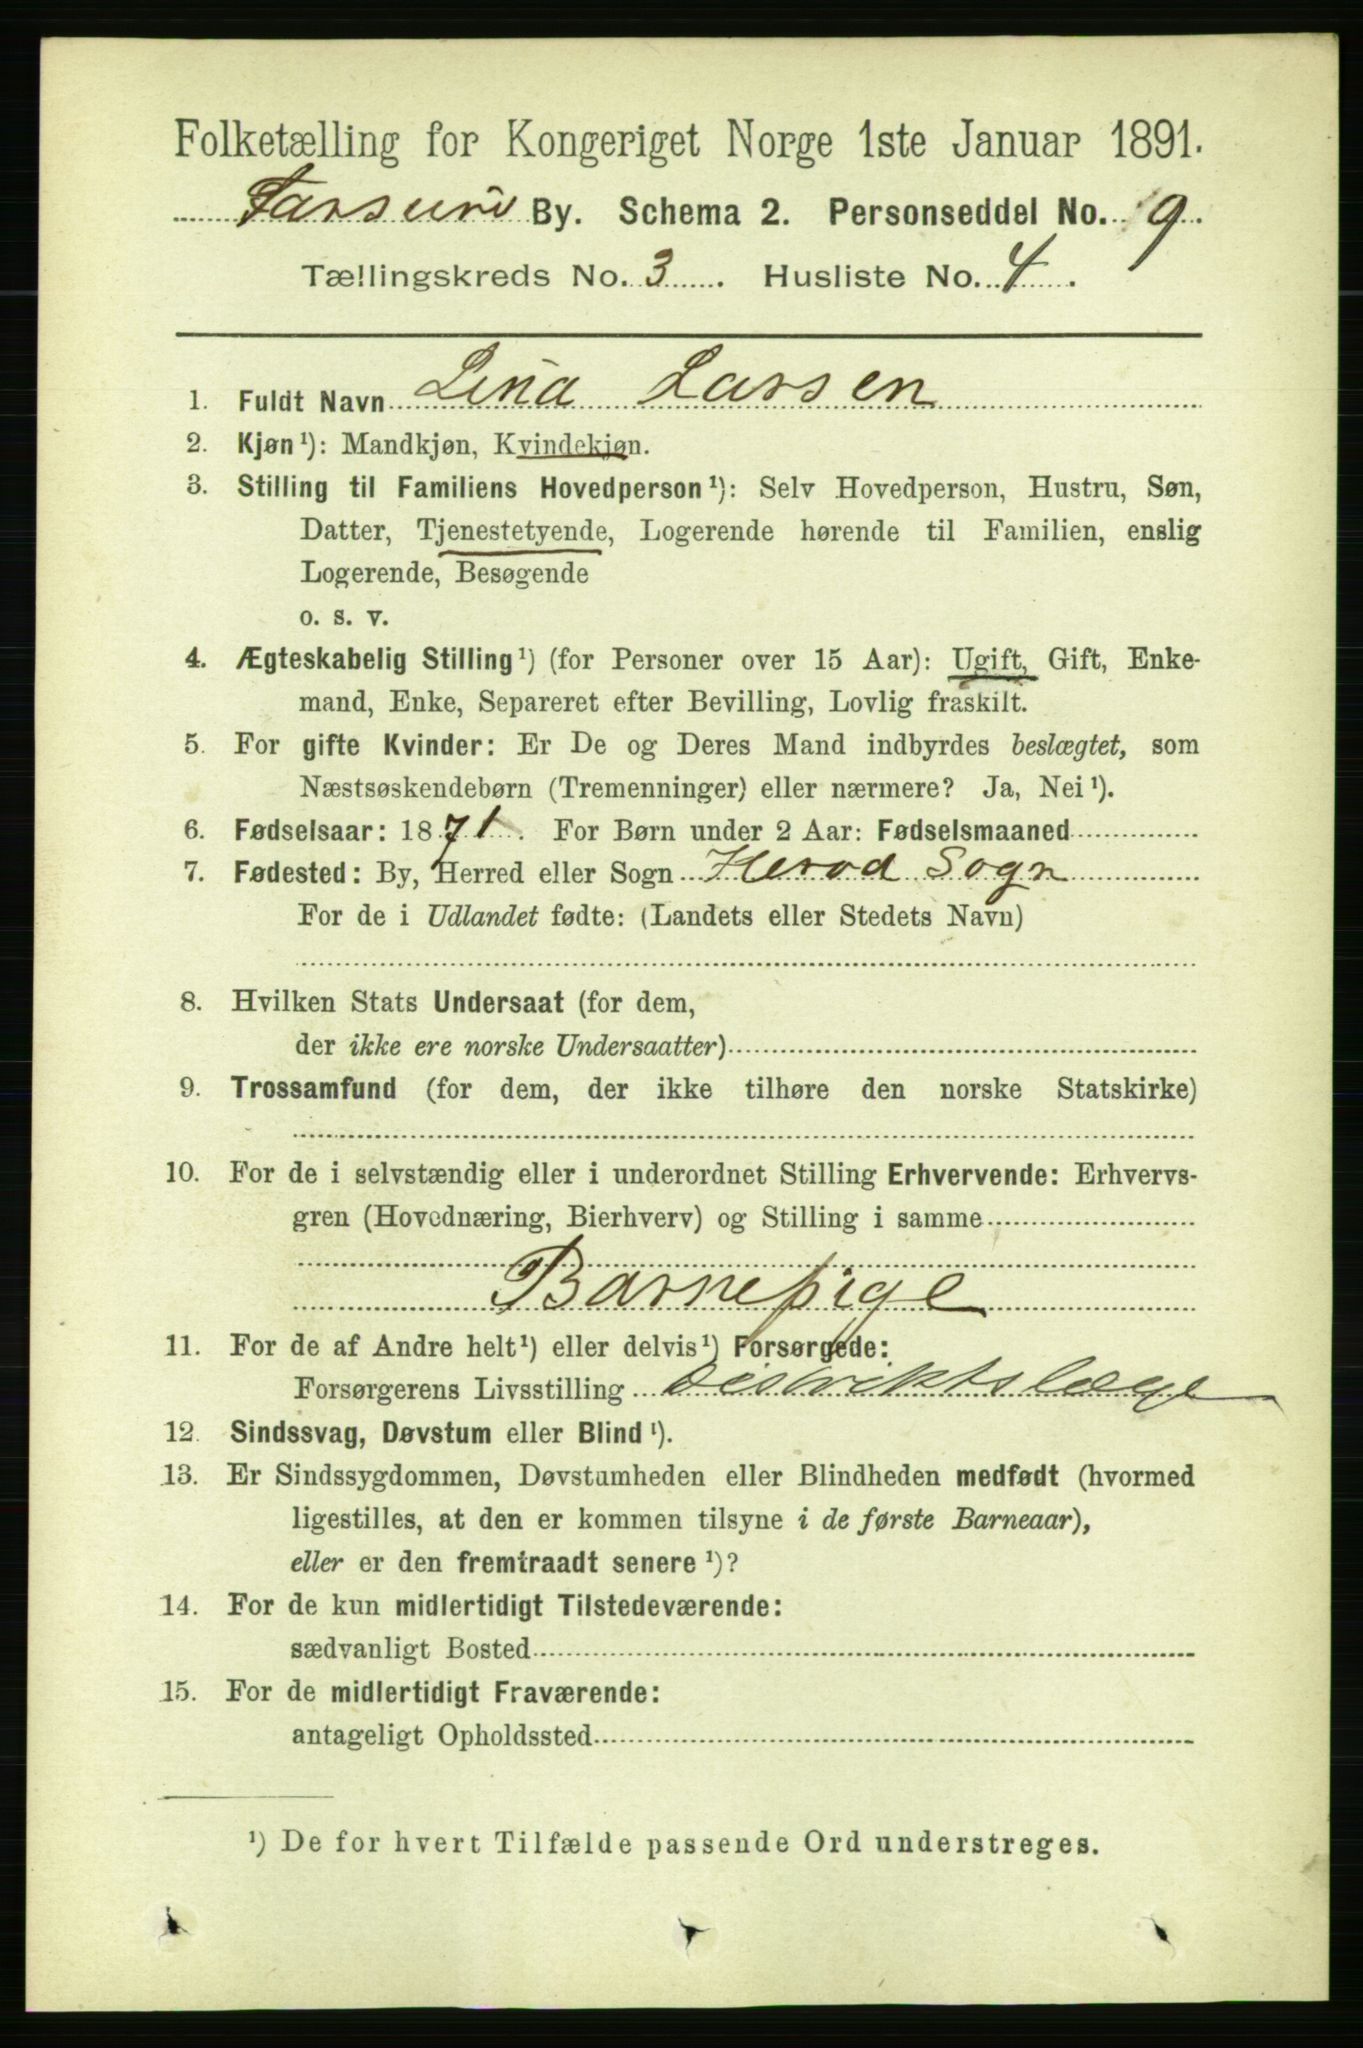 Folketælling for Kongeriget Norge 1ste Januar 1891.
Farsund By. Schema 2. Personseddel No. 9.
Tællingskreds No. 3. Husliste No. 4.
1. Fuldt Navn Lina Larsen
2. Kjøn ¹): Mandkjøn, Kvindekjøn.
3. Stilling til Familiens Hovedperson ¹): Selv Hovedperson, Hustru, Søn,
Datter, Tjenestetyende, Logerende hørende til Familien, enslig
Logerende, Besøgende
o. s. v.
4. Ægteskabelig Stilling ¹) (for Personer over 15 Aar): Ugift, Gift, Enke-
mand, Enke, Separeret efter Bevilling, Lovlig fraskilt.
5. For gifte Kvinder: Er De og Deres Mand indbyrdes beslægtet, som
Næstsøskendebørn (Tremenninger) eller nærmere? Ja, Nei ¹).
6. Fødselsaar: 1871. For Børn under 2 Aar: Fødselsmaaned
7. Fødested: By, Herred eller Sogn Herod Sogn
For de i Udlandet fødte: (Landets eller Stedets Navn)
8. Hvilken Stats Undersaat (for dem,
der ikke ere norske Undersaatter)
9. Trossamfund (for dem, der ikke tilhøre den norske Statskirke)
10. For de i selvstændig eller i underordnet Stilling Erhvervende: Erhvervs-
gren (Hovednæring, Bierhverv) og Stilling i samme
Barnepige
11. For de af Andre helt ¹) eller delvis ¹) Forsørgede:
Forsørgerens Livsstilling Distriktslæge
12. Sindssvag, Døvstum eller Blind ¹).
13. Er Sindssygdommen, Døvstumheden eller Blindheden medfødt (hvormed
ligestilles, at den er kommen tilsyne i de første Barneaar),
eller er den fremtraadt senere ¹)?
14. For de kun midlertidigt Tilstedeværende:
sædvanligt Bosted
15. For de midlertidigt Fraværende:
antageligt Opholdssted
¹) De for hvert Tilfælde passende Ord understreges.